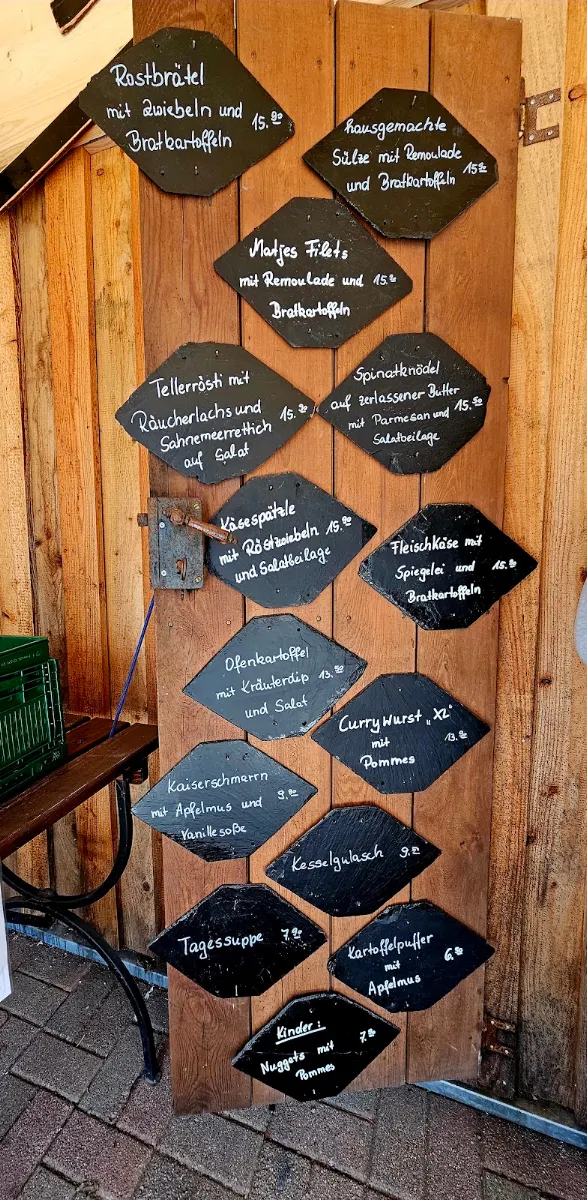 Rostbrätel
mit Zwiebeln und
Bratkartoffeln
15.90
hausgemachte
Sülze mit Remoulade
und Bratkartoffeln
15.90
Matjes Filets
mit Remoulade und
Bratkartoffeln
15.90
Tellerrösti mit
Räucherlachs und
Sahnemeerrettich
auf Salat
15.90
Spinatknödel
auf zerlassener Butter
mit Parmesan und
Salatbeilage
15.90
Käsespätzle
mit Röstzwiebeln
und Salatbeilage
15.90
Fleischkäse mit
Spiegelei und
Bratkartoffeln
15.90
Ofenkartoffel
mit Kräuterdip
und Salat
13.90
Currywurst „XL"
mit
Pommes
13.90
Kaiserschmarrn
mit Apfelmus und
Vanillesoße
9.90
Kesselgulasch
9.90
Tagessuppe
7.90
Kartoffelpuffer
mit
Apfelmus
6.90
Kinder:
Nuggets mit
Pommes
7.90